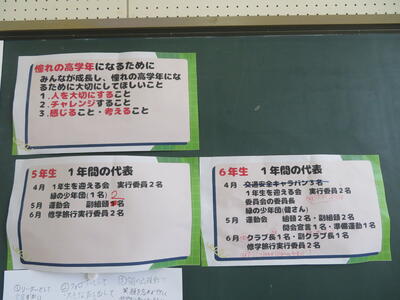 憧れの高学年になるために
みんなが成長し、憧れの高学年にな
るために大切にしてほしいこと
１.人を大切にすること
２.チャレンジすること
３.感じること・考えること
５年生　１年間の代表
４月　１年生を迎える会　実行委員２名
緑の少年団(１名) 2
５月　運動会　副組頭１名
６月　修学旅行実行委員２名
６年生　１年間の代表
４月　交通安全キャラバン３名
１年生を迎える会　実行委員２名
委員会の委員長
緑の少年団(皆さん)
５月　運動会　組頭２名・副組頭２名
開会宣言１名・準備運動１名
６月　クラブ長１名・副クラブ長１名
修学旅行実行委員２名
①リーダーとして